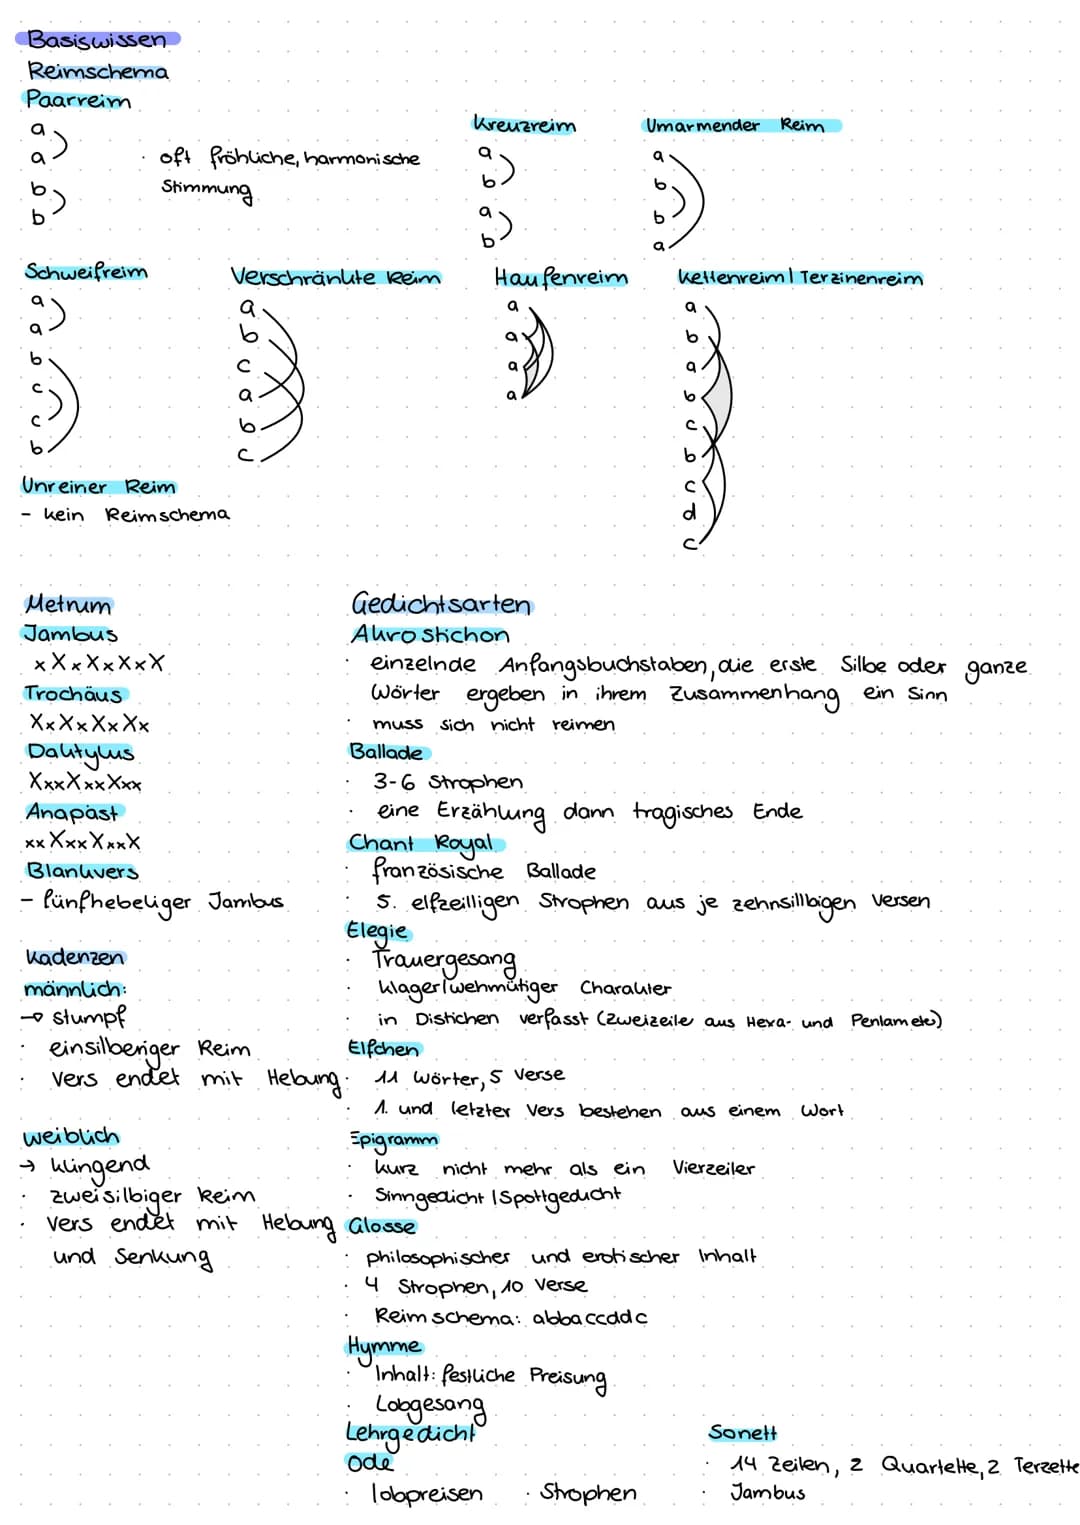 Basiswissen
Reimschema
Paarreim
a
a
b
b
· oft fröhliche, harmonische
Stimmung
Kreuzreim
a
b
a
b
Umarmender Reim
a
b
b
a
Schweifreim
a
a
b
c
c
b
Verschränkte Reim
a
b
c
a
b
c
Haufenreim
a
a
a
a
Kettenreim | Terzinenreim
a
b
a
b
c
b
c
d
c
Unreiner Reim
- kein Reimschema
Metrum
Jambus
xXxXxXxX
Trochäus
XxXxXxXx
Daktylus
XxxXxxXxx
Anapäst
xxXxxXxxX
Blankvers
- fünfhebeliger Jambus
Kadenzen
männlich:
→ stumpf
· einsilberiger Reim
· Vers endet mit Hebung
weiblich
→ klingend
· zweisilbiger Reim
· Vers endet mit Hebung
und Senkung
Gedichtsarten
Akrostichon
· einzelnde Anfangsbuchstaben, die erste Silbe oder ganze
Wörter ergeben in ihrem Zusammenhang ein Sinn
· muss sich nicht reimen
Ballade
· 3-6 Strophen
· eine Erzählung dann tragisches Ende
Chant Royal
· französische Ballade
· 5. elfzeilligen Strophen aus je zehnsillbigen Versen
Elegie
· Trauergesang
· klager/wehmütiger Charakter
· in Distichen verfasst (Zweizeiler aus Hexa- und Pentameter)
Elfchen
· 11 Wörter, 5 Verse
· 1. und letzter Vers bestehen aus einem Wort
Epigramm
· kurz nicht mehr als ein Vierzeiler
· Sinngedicht | Spottgedicht
Glosse
· philosophischer und erotischer Inhalt
· 4 Strophen, 10 Verse
· Reimschema: abbaccddc
Hymme
· Inhalt: festliche Preisung
· Lobgesang
Lehrgedicht
Ode
· lobpreisen · Strophen
Sonett
· 14 Zeilen, 2 Quartette, 2 Terzette
· Jambus